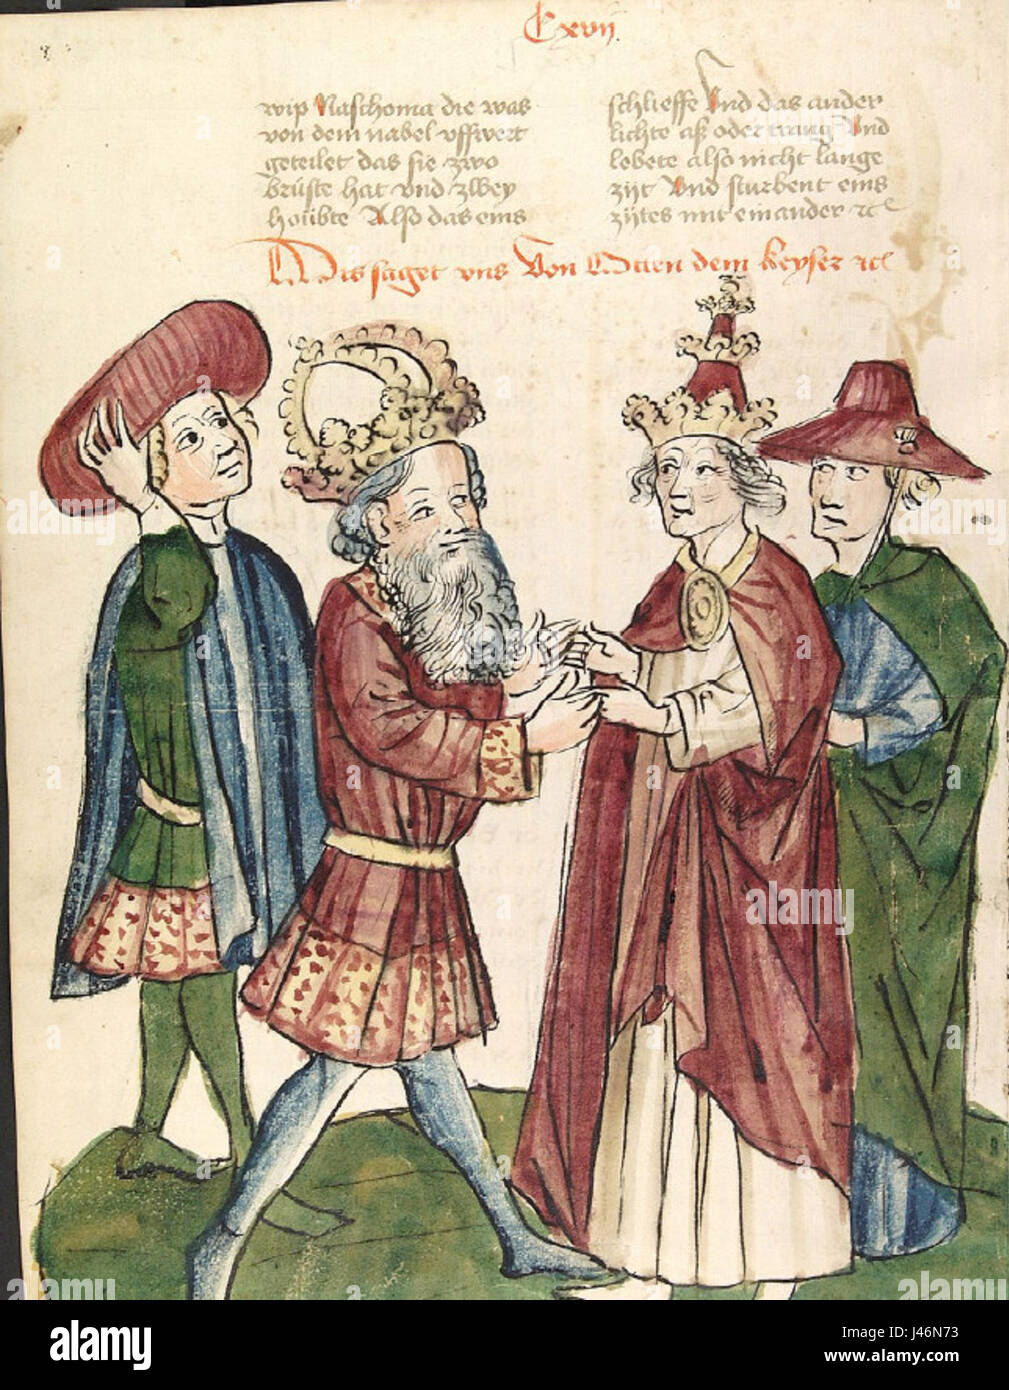 Cxvij
wip Naschoma die was
von dem nabel uffwert
geteilet das sie zwo
brüste hat vnd zwey
houbte Also das eins
schlieffe Vnd das ander
lichte aß oder trang Vnd
lebete also nicht lange
zijt Vnd sturbent eins
zijtes mit einander rc
Dis saget vns Von Otten dem keyser rc
alamy
alamy
Image ID: J46N73
www.alamy.com